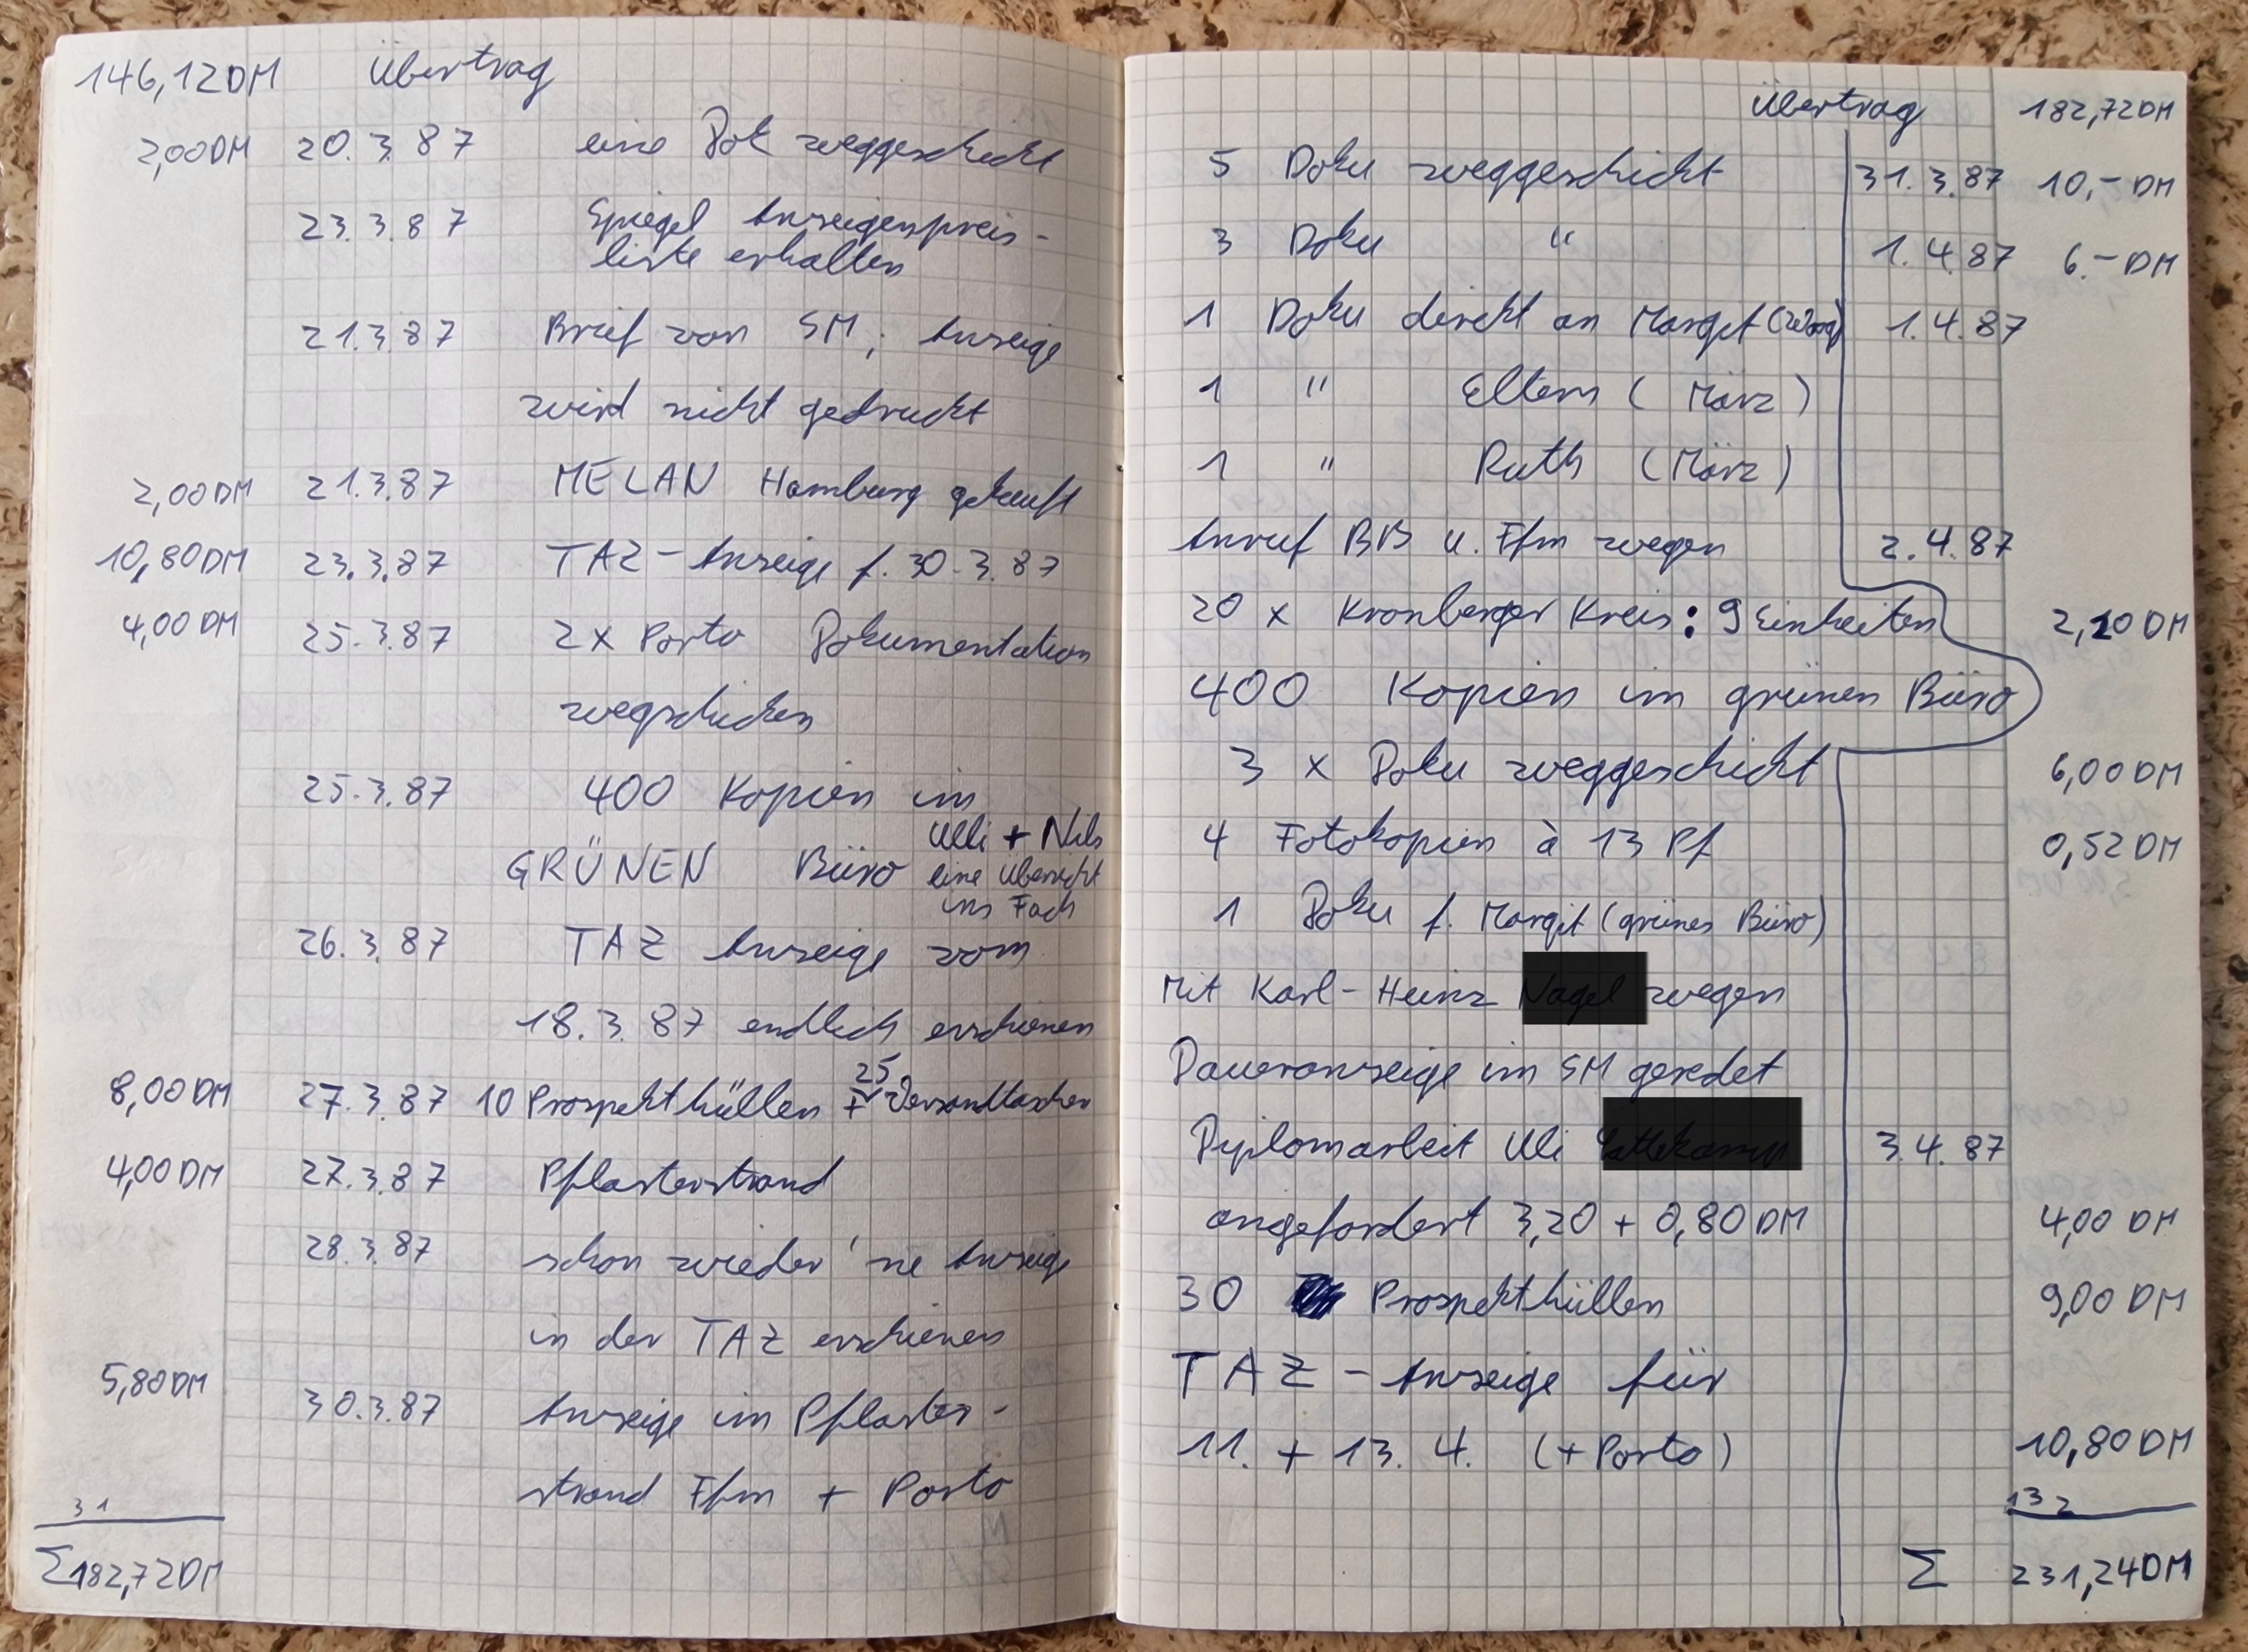 146,12 DM Übertrag
2,00 DM 20.3.87 eine Dok weggeschickt
23.3.87 Spiegel Anzeigenpreis-
liste erhalten
21.3.87 Brief von SM; Anzeige
wird nicht gedruckt
2,00 DM 21.3.87 MELAN Hamburg gekauft
10,80 DM 23.3.87 TAZ-Anzeige f. 30.3.87
4,00 DM 25.3.87 2x Porto Dokumentation
wegschicken
25.3.87 400 Kopien im
GRÜNEN Büro
Ulli + Nils
eine Übersicht
ins Fach
26.3.87 TAZ Anzeige vom
18.3.87 endlich erschienen
8,00 DM 27.3.87 10 Prospekthüllen + 25 Versandtaschen
4,00 DM 27.3.87 Pflasterstrand
28.3.87 schon wieder 'ne Anzeige
in der TAZ erschienen
5,80 DM 30.3.87 Anzeige im Pflaster-
strand Ffm + Porto
31
Σ 182,72 DM
Übertrag 182,72 DM
5 Doku weggeschickt 31.3.87 10,- DM
3 Doku " 1.4.87 6.- DM
1 Doku direkt an Margit 1.4.87
1 " Eltern (März)
1 " Ruth (März)
Anruf BB u. Ffm wegen 2.4.87
20 x Kronberger Kreis: 9 Einheiten 2,10 DM
400 Kopien im grünen Büro
3 x Doku weggeschickt 6,00 DM
4 Fotokopien à 13 Pf 0,52 DM
1 Doku f. Margit (grünes Büro)
Mit Karl-Heinz wegen
Daueranzeige im SM geredet
Diplomarbeit Uli 3.4.87
angefordert 3,20 + 0,80 DM 4,00 DM
30 Prospekthüllen 9,00 DM
TAZ - Anzeige für
11. + 13. 4. (+ Porto) 10,80 DM
132
Σ 231,24 DM